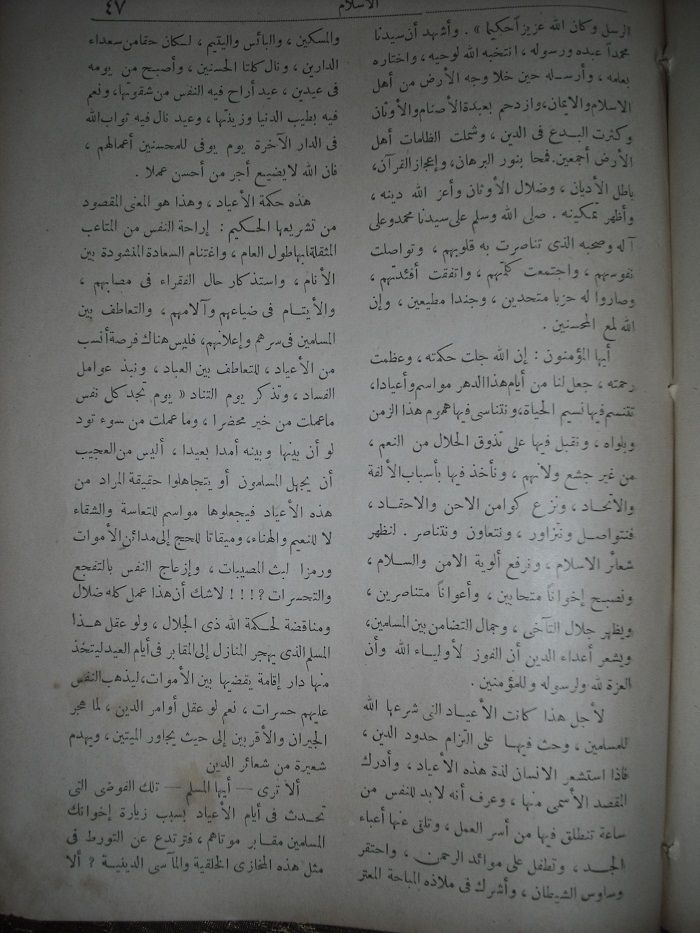 الاسلام
٤٧
الرسل وكان الله عزيزاً حكيما » . وأشهد أن سيدنا
محمداً عبده ورسوله ، انتخبه الله لوحيه ، واختاره
بعلمه ، وأرسله حين خلا وجه الأرض من أهل
الاسلام والايمان، وازدحم بعبدة الأصنام والأوثان
وكثرت البدع فى الدين ، وشملت الظلمات أهل
الأرض أجمعين. فمحا بنور البرهان، وإعجاز القرآن،
باطل الأديان ، وضلال الأوثان وأعز الله دينه ،
وأظهر تمكينه . صلى الله وسلم على سيدنا محمد وعلى
آله وصحبه الذى تناصرت به قلوبهم ، وتواصلت
نفوسهم ، واجتمعت كلمتهم ، واتفقت أفئدتهم ،
وصاروا له حزبا متحدين ، وجندا مطيعين ، وإن
الله لمع المحسنين .
أيها المؤمنون : إن الله جلت حكمته ، وعظمت
رحمته ، جعل لنا من أيام هذا الدهر مواسم وأعيادا،
نتنسم فيها نسيم الحياة، ونتناسى فيها هموم هذا الزمن
وبلواه ، ونقبل فيها على تذوق الحلال من النعم ،
من غير جشع ولا نهم ، ونأخذ فيها بأسباب الألفة
والاتحاد ، ونزع كوامن الاحن والاحقاد ،
فنتواصل ونتزاور ، ونتعاون ونتناصر . لنظهر
شعائر الاسلام ، ونرفع ألوية الامن والسلام ،
ونصبح إخواناً متحابين ، وأعواناً متناصرين ،
ويظهر جلال التآخى ، وجمال التضامن بين المسلمين،
ويشعر أعداء الدين أن الفوز لأولياء الله وأن
العزة لله ولرسوله وللمؤمنين .
لأجل هذا كانت الأعياد التى شرعها الله
للمسلمين ، وحث فيها على التزام حدود الدين ،
فاذا استشعر الانسان لذة هذه الأعياد ، وأدرك
المقصد الأسمى منها ، وعرف أنه لابد للنفس من
ساعة تنطلق فيها من أسر العمل ، وتلقى عنها أعباء
الجد ، وتطفل على موائد الرحمن ، واحتقر
وساوس الشيطان ، وأشرك فى ملاذه المباحة المعتر
والمسكين ، والبائس واليتيم ، لكان حقا من سعداء
الدارين ، ونال كلتا الحسنيين ، وأصبح من يومه
فى عيدين ، عيد أراح فيه النفس من شقوتها، ونعم
فيه بطيب الدنيا وزينتها ، وعيد نال فيه ثواب الله
فى الدار الآخرة يوم يوفى للمحسنين أعمالهم ،
فان الله لا يضيع أجر من أحسن عملا .
هذه حكمة الأعياد ، وهذا هو المعنى المقصود
من تشريعها الحكيم : إراحة النفس من المتاعب
المثقلة لها طول العام ، واغتنام السعادة المنشودة بين
الأنام ، واستذكار حال الفقراء فى مصابهم ،
والأيتام فى ضياعهم وآلامهم ، والتعاطف بين
المسلمين فى سرهم وإعلانهم، فليس هناك فرصة أنسب
من الأعياد ، للتعاطف بين العباد ، ونبذ عوامل
الفساد ، وتذكر يوم التناد « يوم تجد كل نفس
ما عملت من خير محضرا ، وما عملت من سوء تود
لو أن بينها وبينه أمدا بعيدا ، أليس من العجيب
أن يجهل المسلمون أو يتجاهلوا حقيقة المراد من
هذه الأعياد فيجعلوها مواسم للتعاسة والشقاء
لا للنعيم والهناء، وميقاتا للحج إلى مدائن الأموات
ورمزا لبث المصيبات ، وإزعاج النفس بالتفجع
والتحسرات ؟!!! لاشك أن هذا عمل كله ضلال
ومناقضة لحكمة الله ذى الجلال ، ولو عقل هذا
المسلم الذى يهجر المنازل إلى المقابر فى أيام العيد ليتخذ
منها دار إقامة يقضيها بين الأموات، ليذهب النفس
عليهم حسرات ، نعم لو عقل أوامر الدين ، لما هجر
الجيران والأقربين إلى حيث يجاور الميتين ، ويهدم
شعيرة من شعائر الدين
ألا ترى — أيها المسلم — تلك الفوضى التى
تحدث فى أيام الأعياد بسبب زيارة إخوانك
المسلمين مقابر موتاهم ، فترتدع عن التورط فى
مثل هذه المخازى الخلقية والمآسى الدينية ؟ ألا